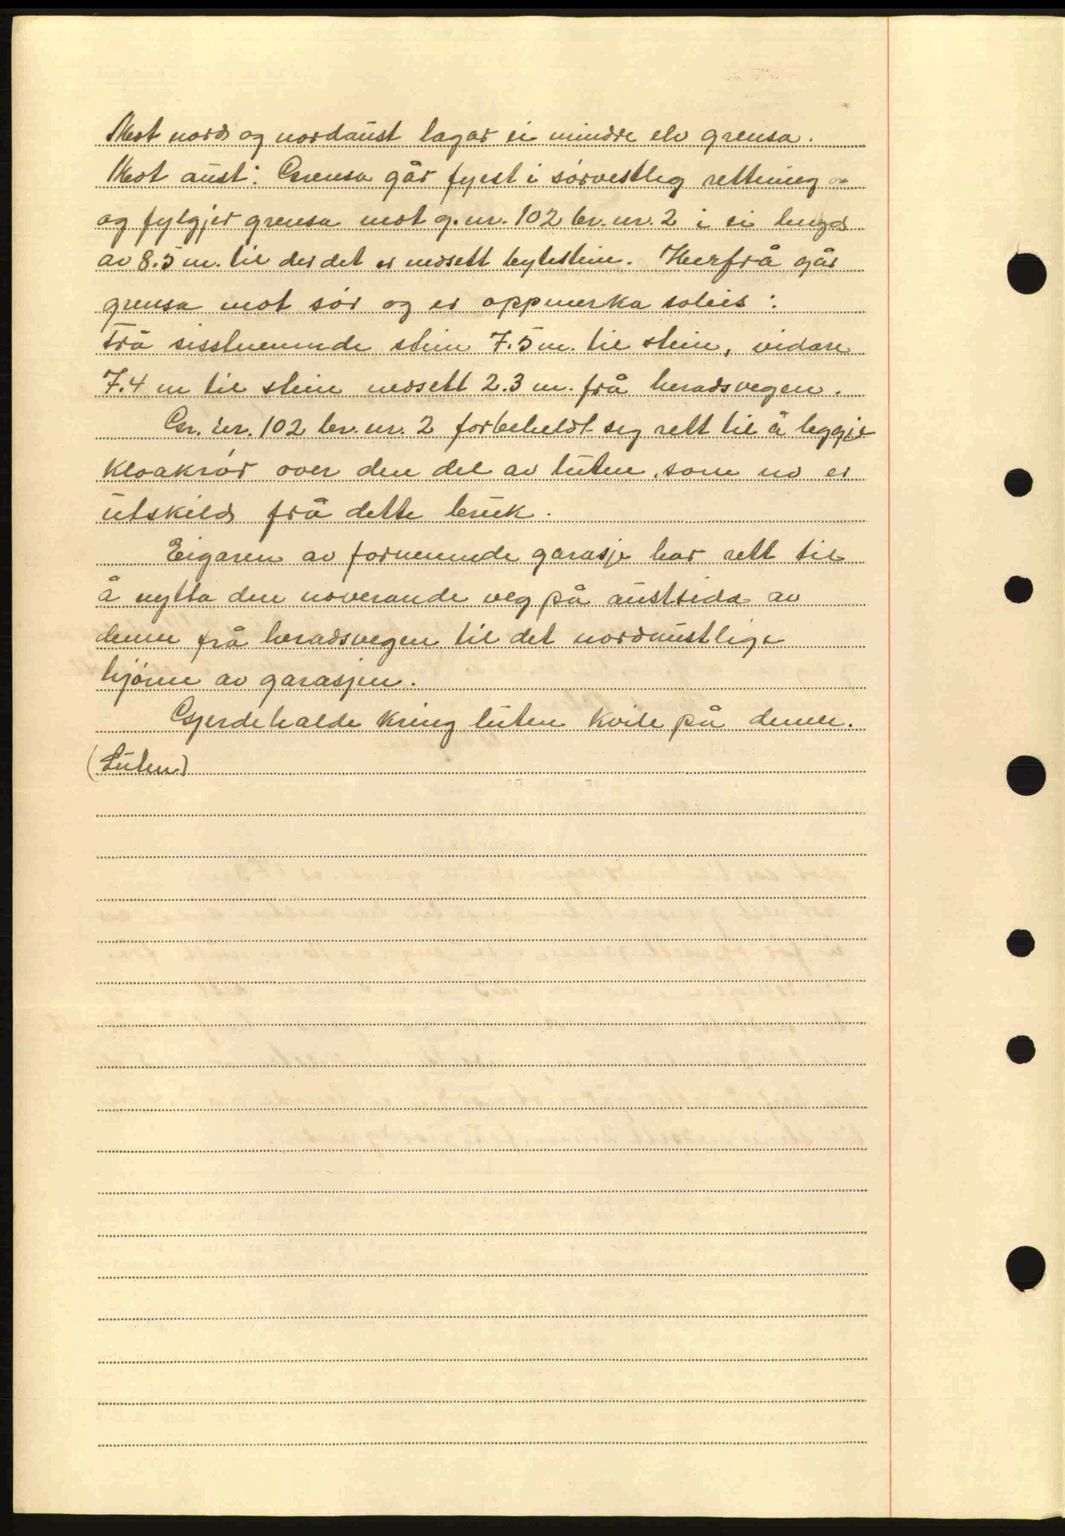 Mot nord og nordaust lagar ei mindre elv grensa.
Mot aust: Grensa går fyrst i sørvestlig rettning
og fylgjer grensa mot g.nr. 102 br.nr. 2 i ei lengd
av 8.5 m. til der det er nedsett bytestein. Herfrå går
grensa mot sør og er oppmerka soleis:
Frå sisstnemnde stein 7.5 m. til stein, vidare
7.4 m til stein nedsett 2.3 m. frå heradsvegen.
Gr. nr. 102 br. nr. 2 forbeheldt seg rett til å leggje
kloakrør over den del av luten, som no er
utskild frå dette bruk.
Eigaren av fornemnde garasje har rett til
å nytta den noverande veg på austsida av
denne frå heradsvegen til det nordaustlige
hjørne av garasjen.
Gjerdehalde kring luten kvile på denne.
(Luten)